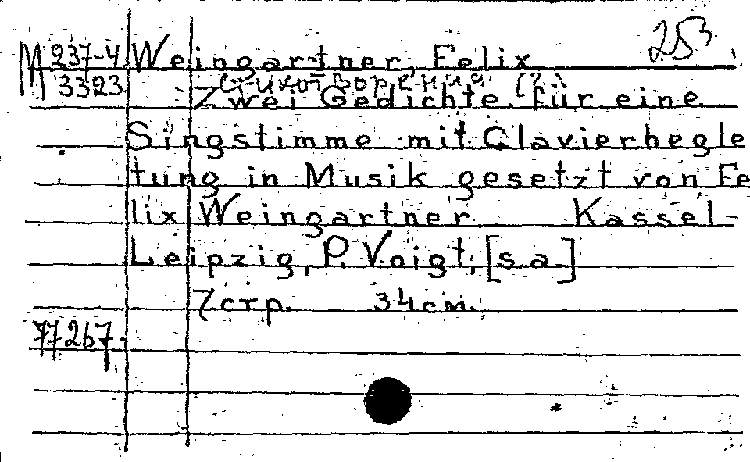 253
М 237-4 Weingartner, Felix
3323 Стихотворения (2)
Zwei Gedichte für eine
Singstimme mit Clavierbegle
tung in Musik gesetzt von Fe
lix Weingartner Kassel-
Leipzig, P. Voigt, [s.a.]
7 стр. 34 cm.
77267